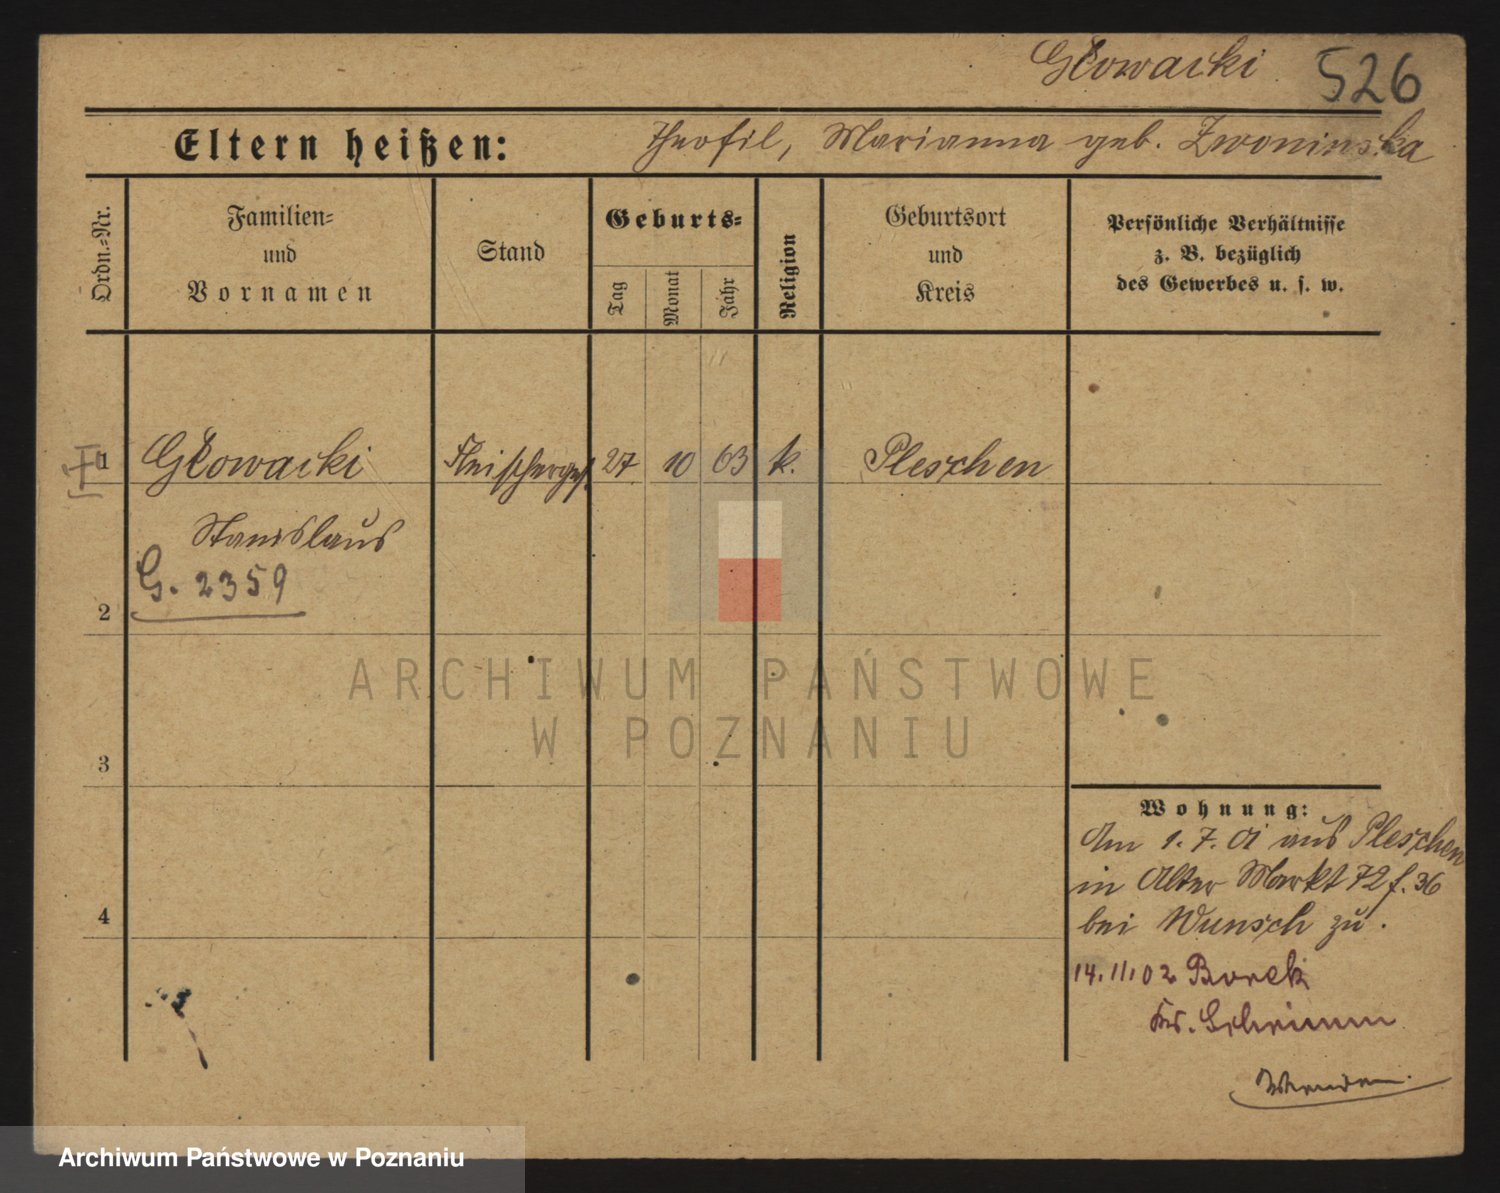 Głowacki 526
Eltern heißen: Theofil, Marianna geb. Zwoninska
Ordn.=Nr.
Familien=
und
Vornamen
Stand
Geburts=
Tag
Monat
Jahr
Religion
Geburtsort
und
Kreis
Persönliche Verhältnisse
z. B. bezüglich
des Gewerbes u. s. w.
1 Głowacki Fleischerges. 27 10 63 k. Pleschen
Stanislaus
G. 2359
2
3
4
Wohnung:
Am 1. 7. 01 aus Pleschen
in Alter Markt 72 f. 36
bei Wunsch zu.
14.11.02 Borek
Kr. Schrimm
Wenden.
ARCHIWUM PAŃSTWOWE
W POZNANIU
Archiwum Państwowe w Poznaniu